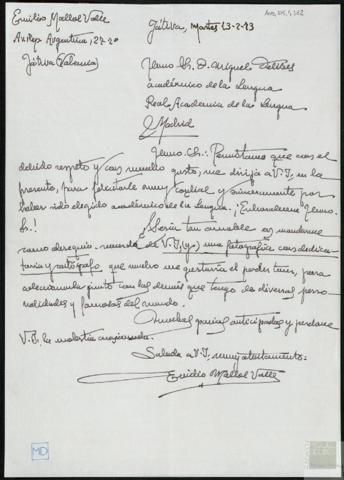 Emilio Mallol Valle
Játiva, Martes 13-2-73
Av. Rep. Argentina, 27-2º
Játiva (Valencia)
Ilmo. Sr. D. Miguel Delibes
académico de la Lengua
Real Academia de la Lengua
Madrid
Ilmo. Sr.: Permítame que con el
debido respeto y con mucho gusto, me dirija a V.I. en la
presente, para felicitarle muy cordial y sinceramente por
haber sido elegido académico de la Lengua. ¡Enhorabuena Ilmo.
Sr.!
Sería tan amable en mandarme
como obsequio-recuerdo de V.I. una fotografía con dedica-
toria y autógrafo, que mucho me gustaría el poder tener, para
coleccionarla junto con las demás que tengo de diversas perso-
nalidades y famosos del mundo.
Muchas gracias anticipadas y perdone
V.I. la molestia ocasionada.
Saluda a V.I. muy atentamente:
Emilio Mallol Valle
MD